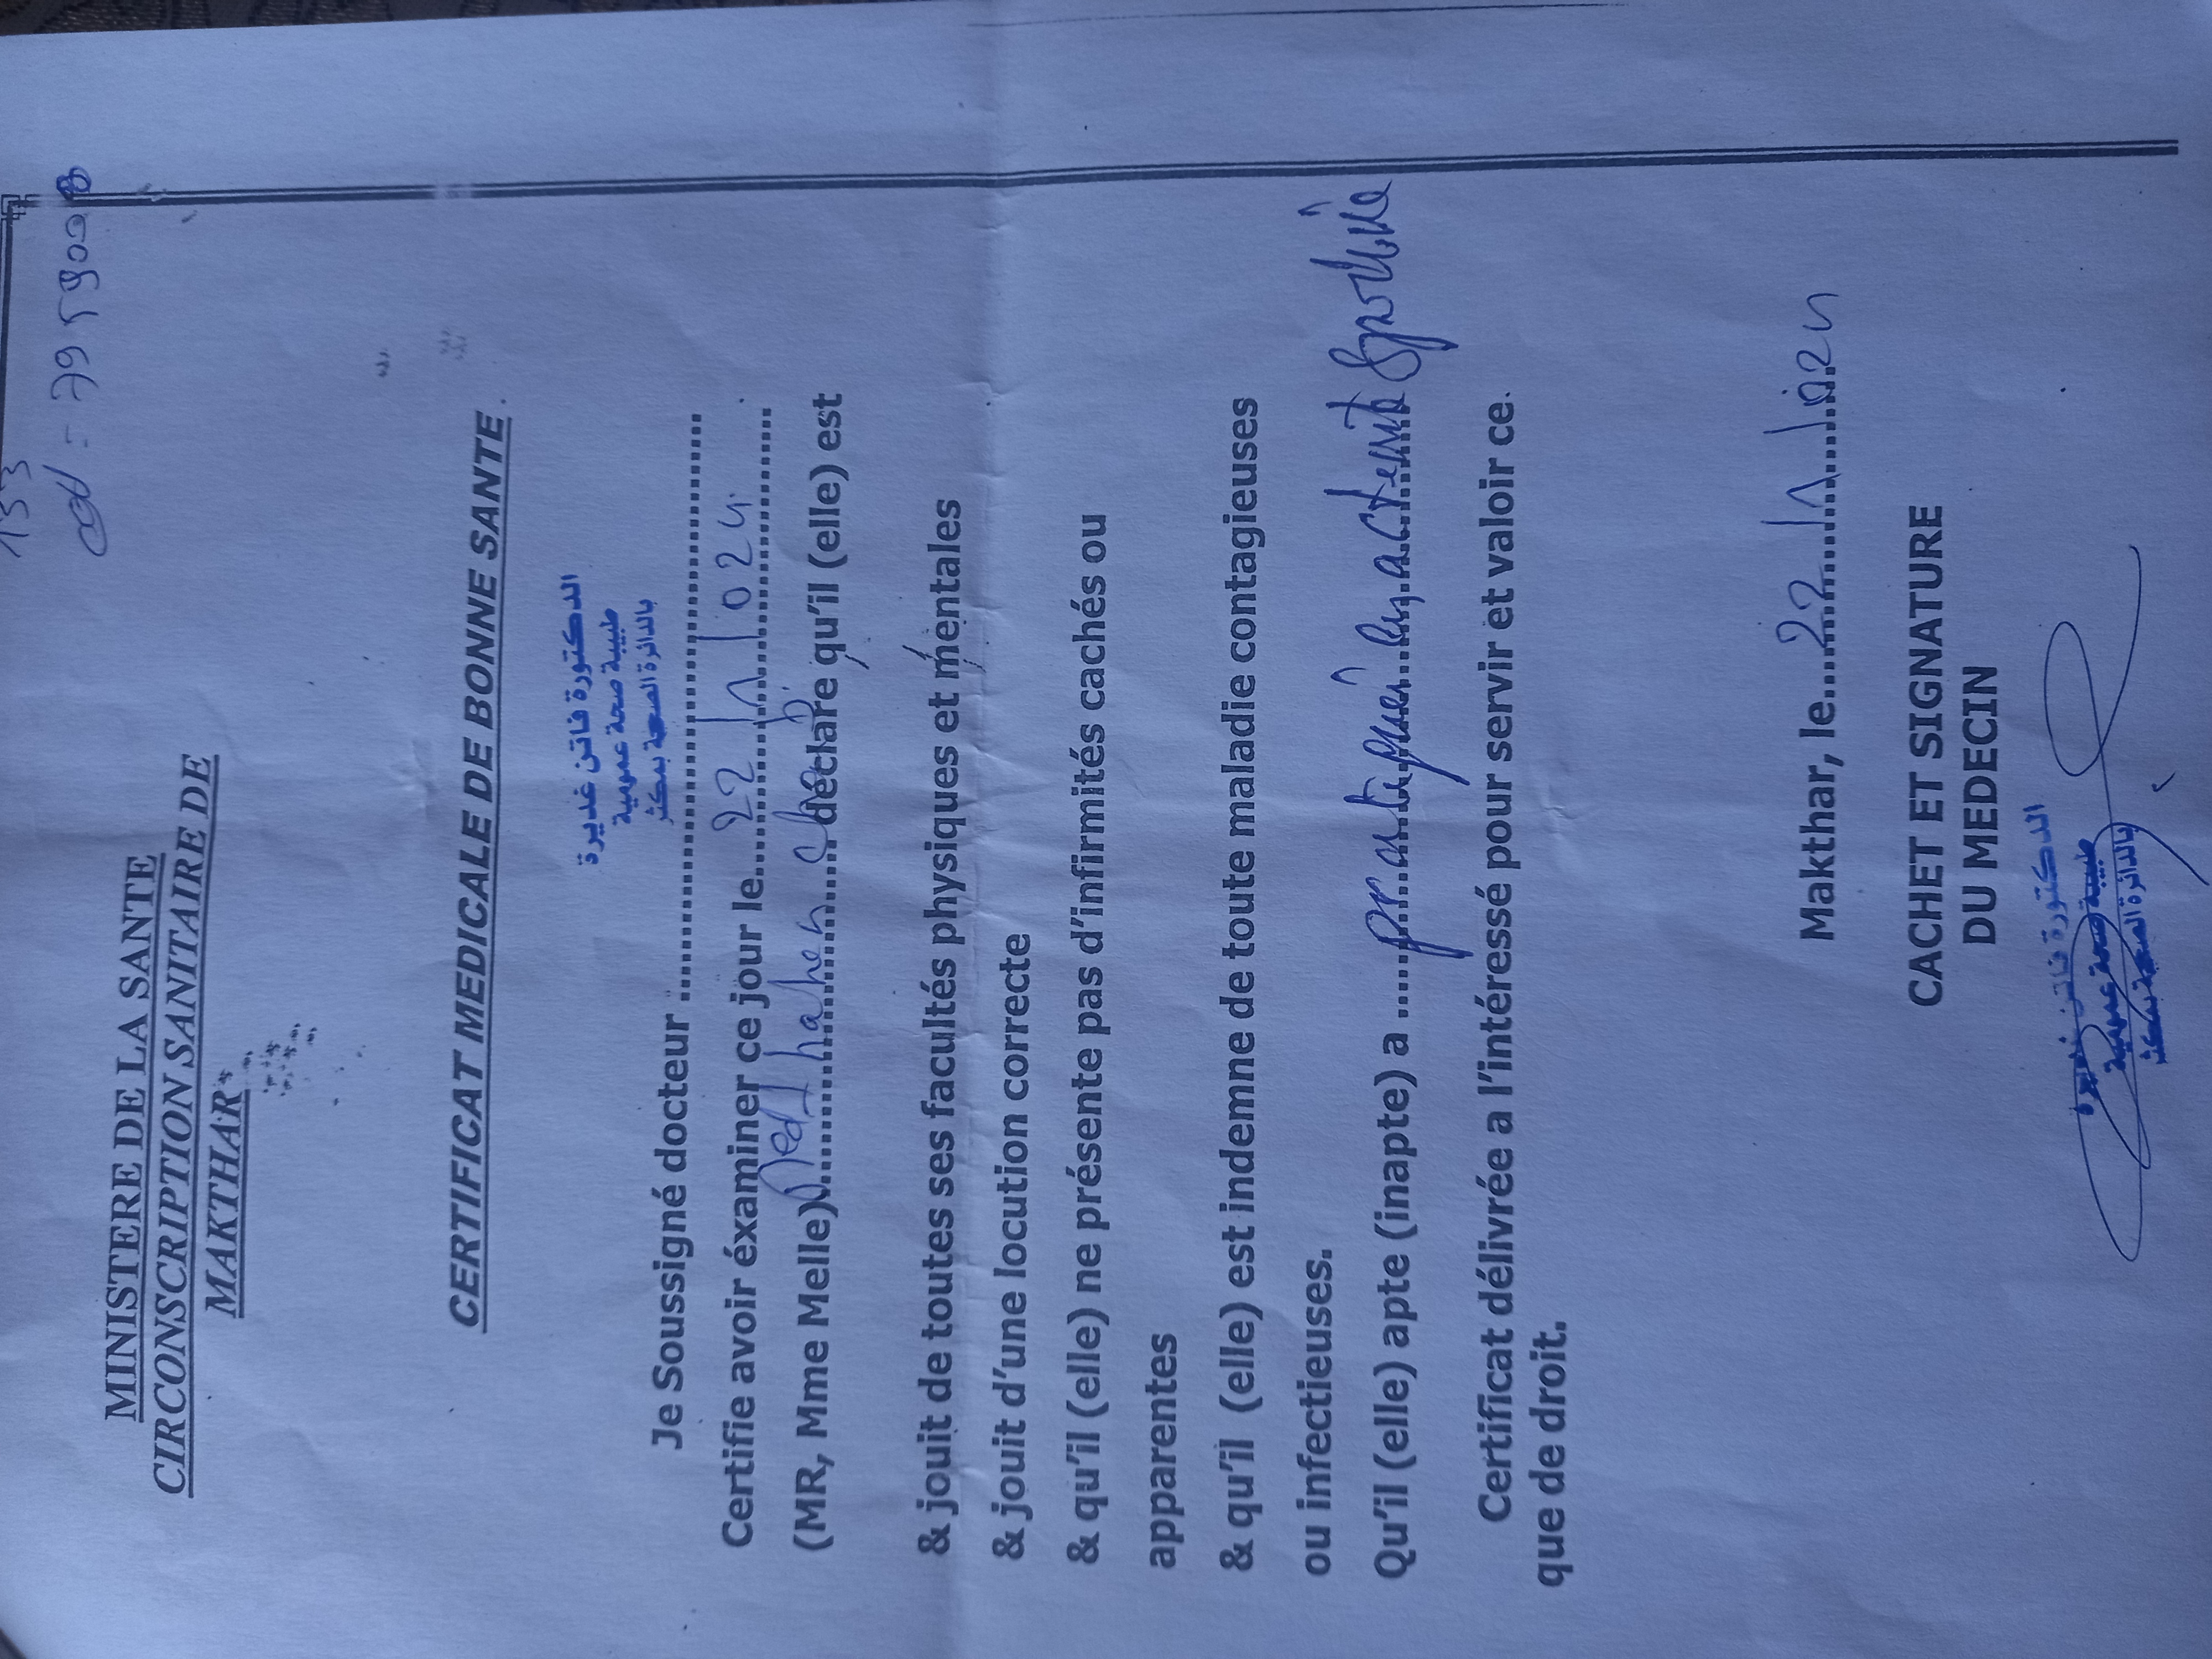 MINISTERE DE LA SANTE
CIRCONSCRIPTION SANITAIRE DE
MAKTHAR
CERTIFICAT MEDICALE DE BONNE SANTE
الدكتورة فاتن غديرة
طبيبة صحة عمومية
بالدائرة الصحية بمكثر
Je Soussigné docteur
Certifie avoir éxaminer ce jour le 22 / 1 / 024
(MR, Mme Melle) déclare qu'il (elle) est
& jouit de toutes ses facultés physiques et mentales
& jouit d'une locution correcte
& qu'il (elle) ne présente pas d'infirmités cachés ou
apparentes
& qu'il (elle) est indemne de toute maladie contagieuses
ou infectieuses.
Qu'il (elle) apte (inapte) a
Certificat délivrée a l'intéressé pour servir et valoir ce
que de droit.
Makthar, le 22 / 1 / 024
CACHET ET SIGNATURE
DU MEDECIN
الدكتورة فاتن غديرة
طبيبة صحة عمومية
بالدائرة الصحية بمكثر